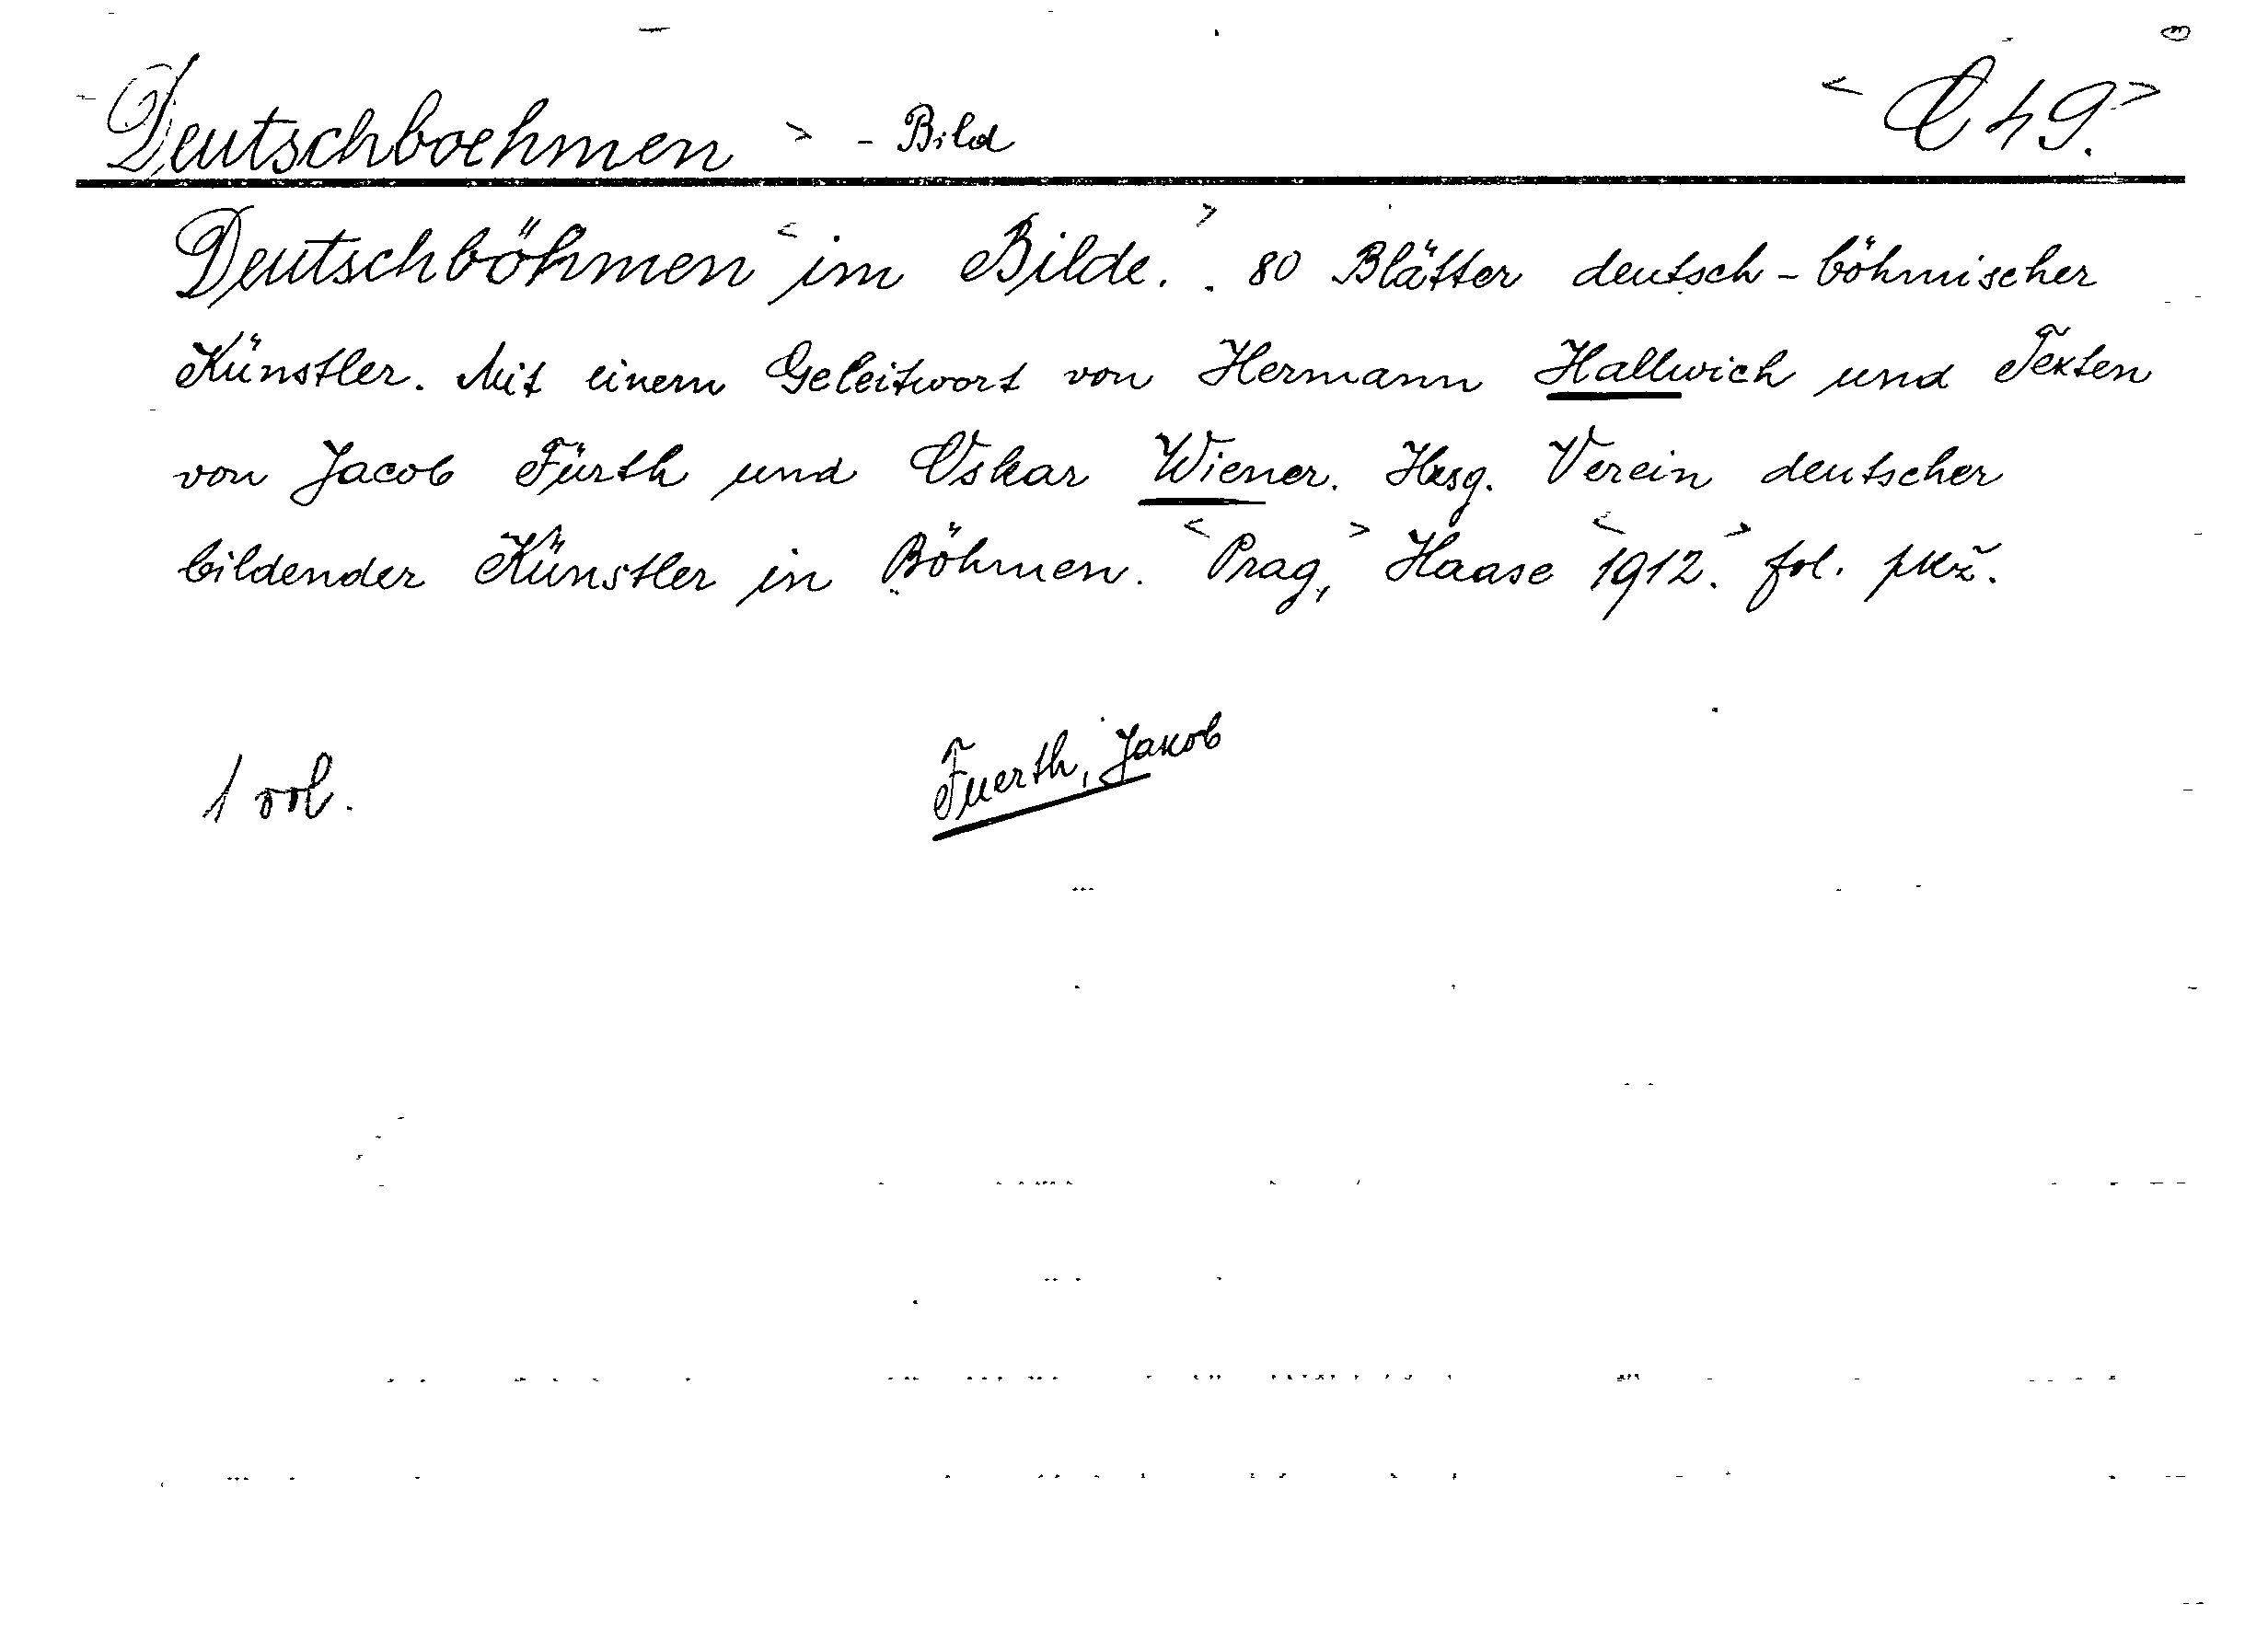 Deutschboehmen > - Bild < C 49. >
Deutschböhmen < im Bilde. > . 80 Blätter deutsch - böhmischer
Künstler. Mit einem Geleitwort von Hermann Hallwich und Texten
von Jacob Fürth und Oskar Wiener. Hrsg. Verein deutscher
bildender Künstler in Böhmen. < Prag, > Haase < 1912. > fol.
Fuerth, Jakob
1 vol.